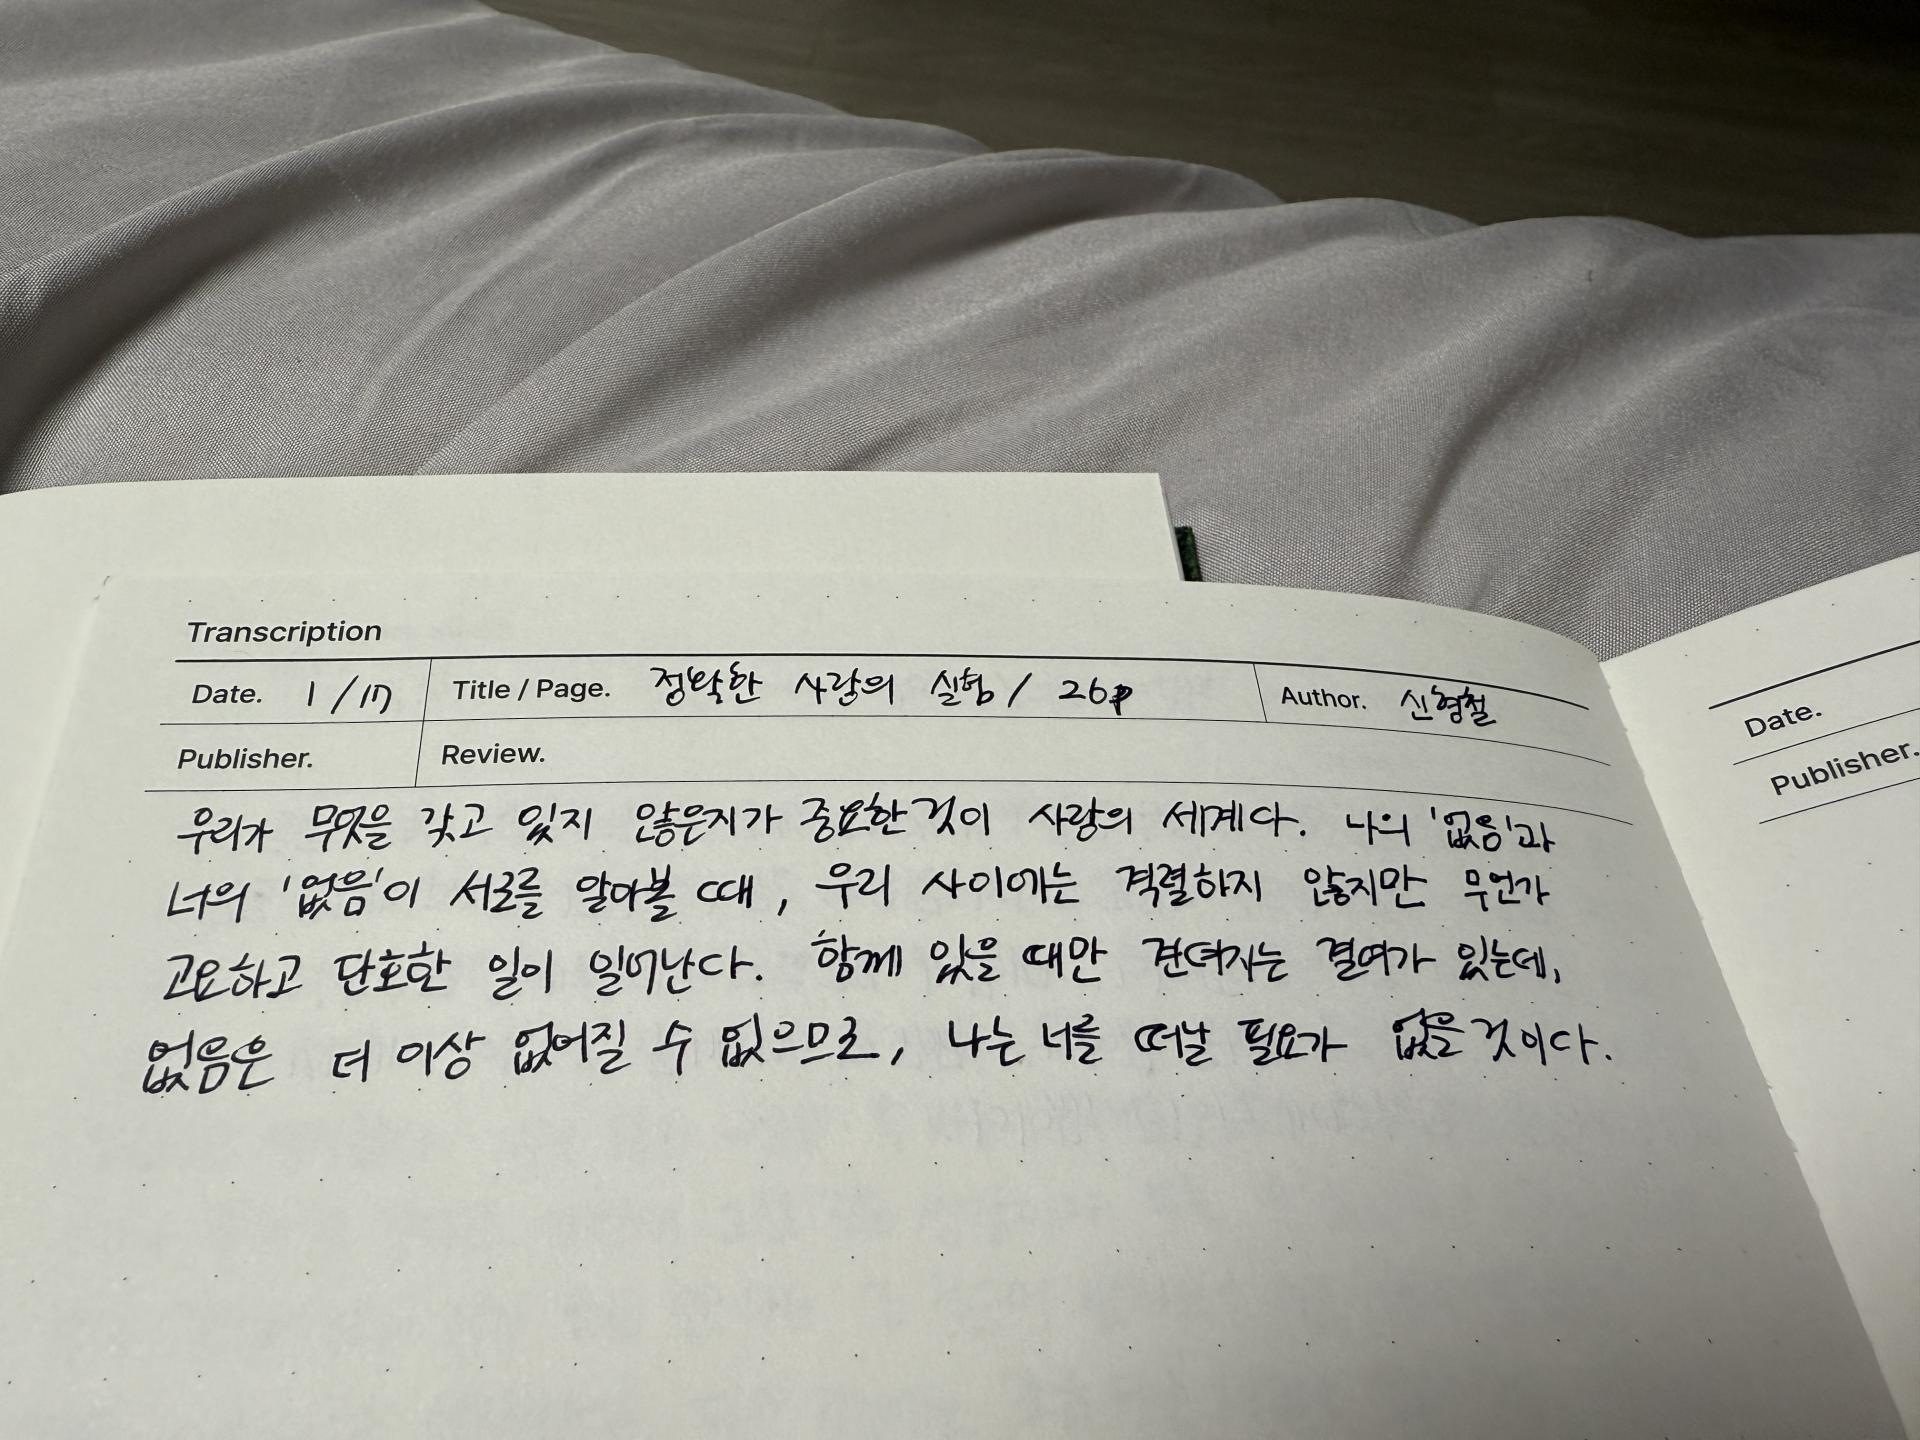 Transcription
Date. 1/17 Title / Page. 정확한 사랑의 실험 / 26p Author. 신형철
Publisher. Review.
우리가 무엇을 갖고 있지 않은지가 중요한 것이 사랑의 세계다. 나의 '없음'과
너의 '없음'이 서로를 알아볼 때, 우리 사이에는 격렬하지 않지만 무언가
고요하고 단호한 일이 일어난다. 함께 있을 때만 견뎌지는 결여가 있는데,
없음은 더 이상 없어질 수 없으므로, 나는 너를 떠날 필요가 없을 것이다.
Date.
Publisher.